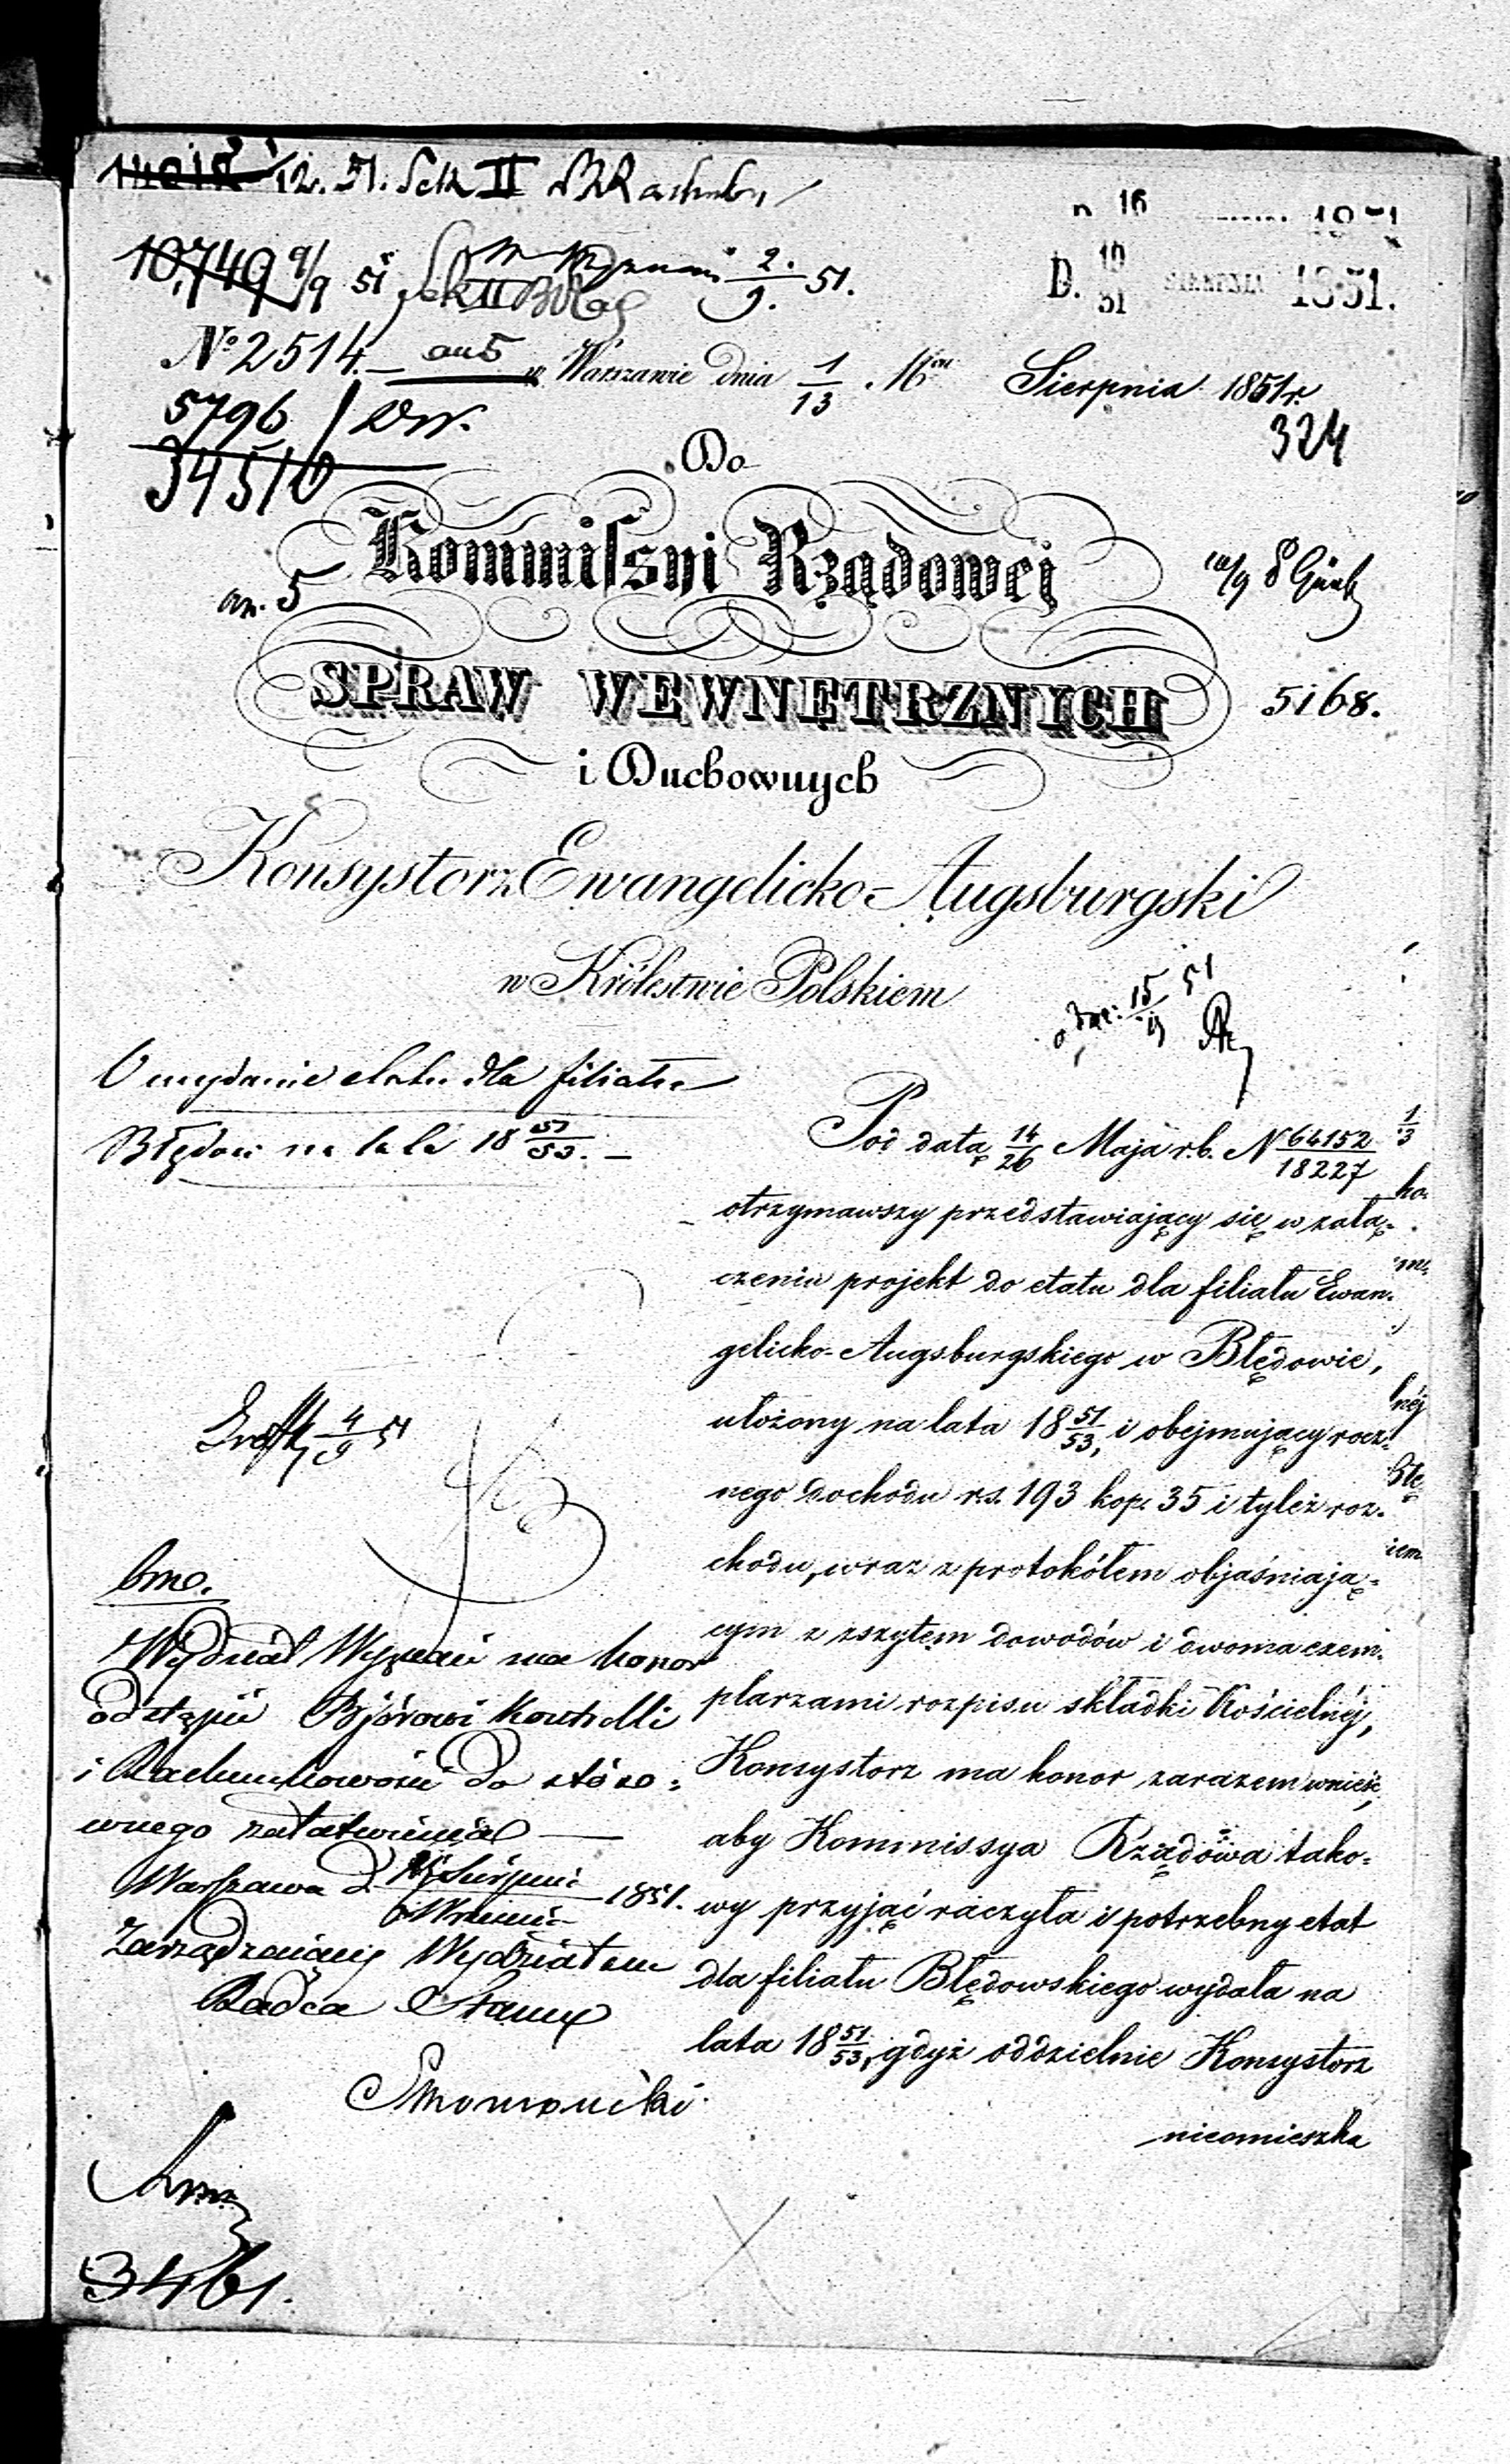 12. 51. Sek II
10,749 9/9 51 Sek II
2/9. 51.
D. 19/31 SIERPNIA 1851.
№ 2514. an 5 w Warszawie dnia 1/13 Mca Sierpnia 1851 r.
5796
34510
324
Do
Kommissyi Rządowej
an. 5
SPRAW WEWNĘTRZNYCH
5168.
i Duchownych
Konsystorz Ewangelicko-Augsburgski
w Królestwie Polskiem
15/9 51
O wydanie etatu dla filiału
Błędow na lata 18 51/53. –
Pod datą 14/26 Maja r.b. N 64152/18227
otrzymawszy przedstawiający się w załą-
czeniu projekt do etatu dla filiału Ewan-
gelicko-Augsburgskiego w Błędowie,
ułożony na lata 18 51/53, i obejmujący rocz-
nego dochodu r.s. 193 kop. 35 i tyleż roz-
chodu, wraz z protokółem objaśniają-
cym z zszytem dowodów i dwoma exem-
plarzami rozpisu składki Kościelnéj,
Konsystorz ma honor zarazem wnieść,
aby Kommissya Rządowa tako-
wy przyjąć raczyła i potrzebny etat
dla filiału Błędowskiego wydała na
lata 18 51/53, gdyż oddzielnie Konsystorz
nieomieszka
4/9 51
bmo.
Wydział Wyznań ma honor
odstąpić Bjórowi Kontrolli
i Rachunkowości do stóso-
wnego załatwienia —
Warszawa d. Sierpnia/Września 1851.
Zarządzający Wydziałem
Radca Stanu
3461.